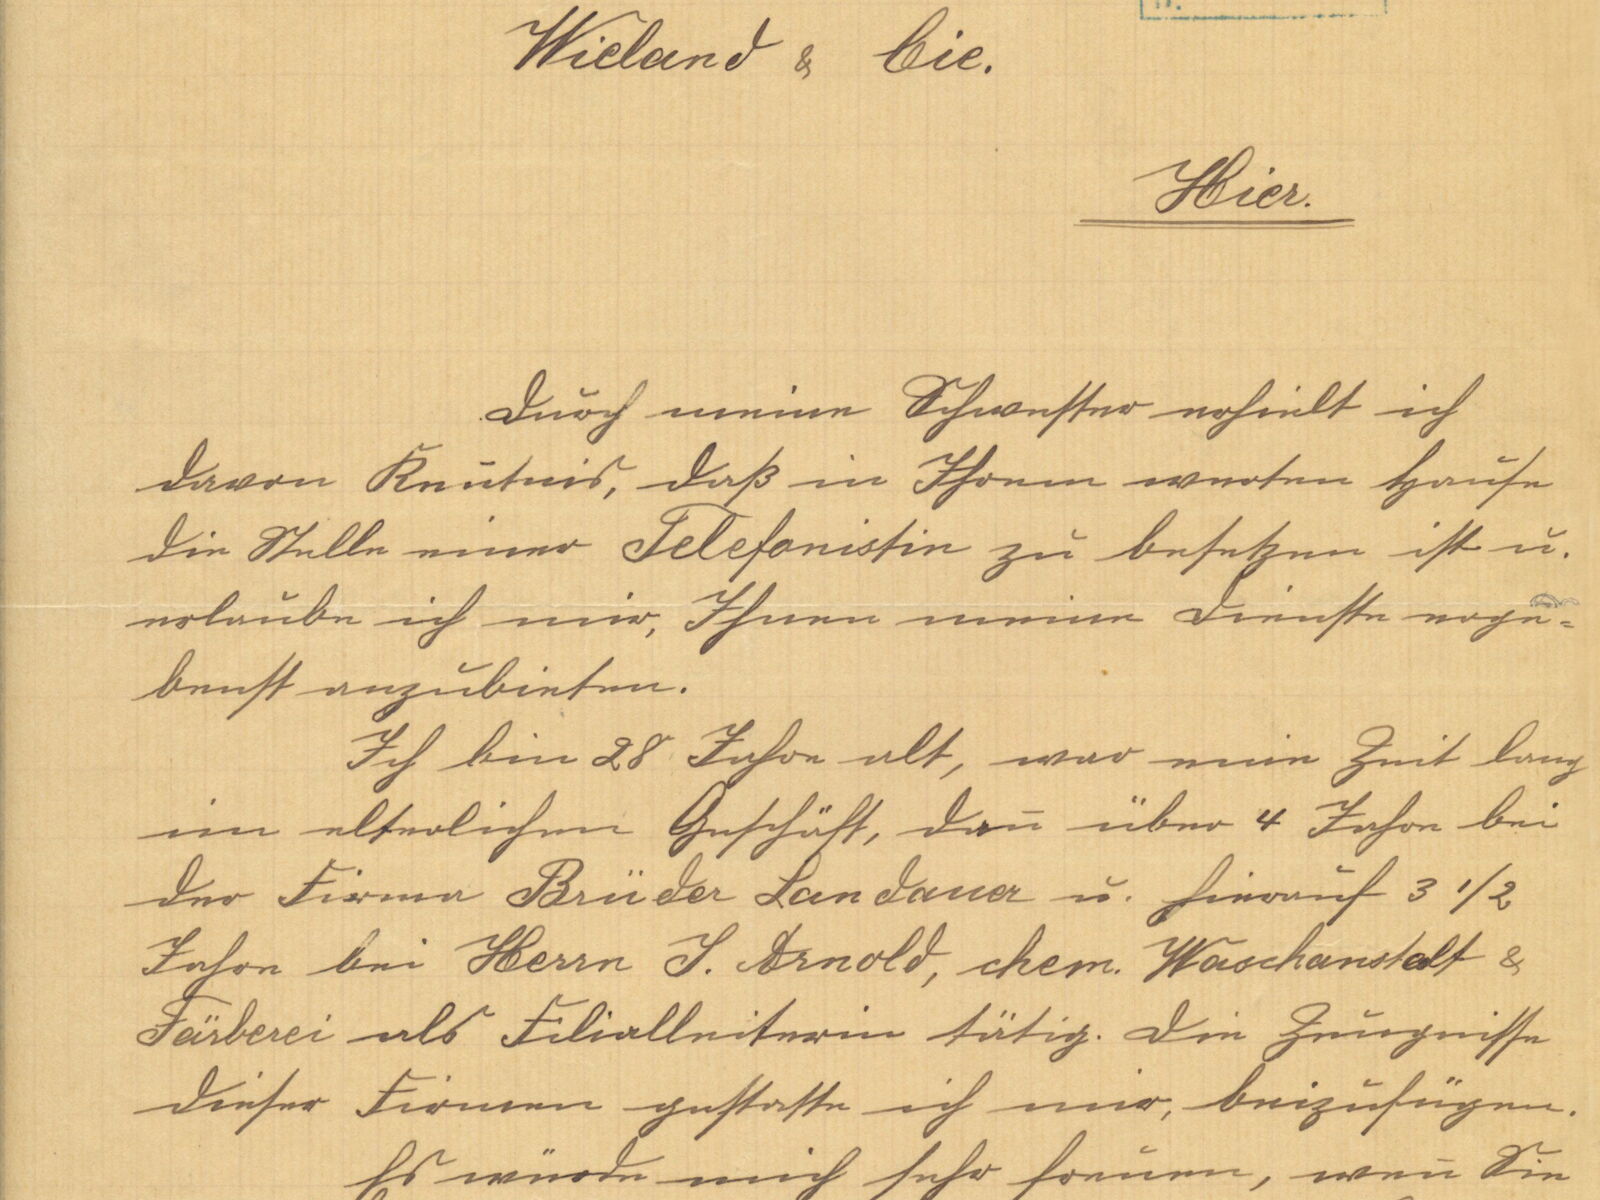 Wieland & Cie.
Hier.
Durch meine Schwester erhielt ich
davon Kentnis, daß in Ihrem werten Hause
die Stelle einer Telefonistin zu besetzen ist u.
erlaube ich mir, Ihnen meine Dienste erge-
benst anzubieten.
Ich bin 28 Jahre alt, war eine Zeit lang
im elterlichen Geschäft, dan̄ über 4 Jahre bei
der Firma Brüder Landauer u. hierauf 3 1/2
Jahre bei Herrn I. Arnold, chem. Waschanstalt &
Färberei als Filialleiterin tätig. Die Zeugnisse
dieser Firmen gestatte ich mir, beizufügen.
Es würde mich sehr freuen, wen̄ Sie